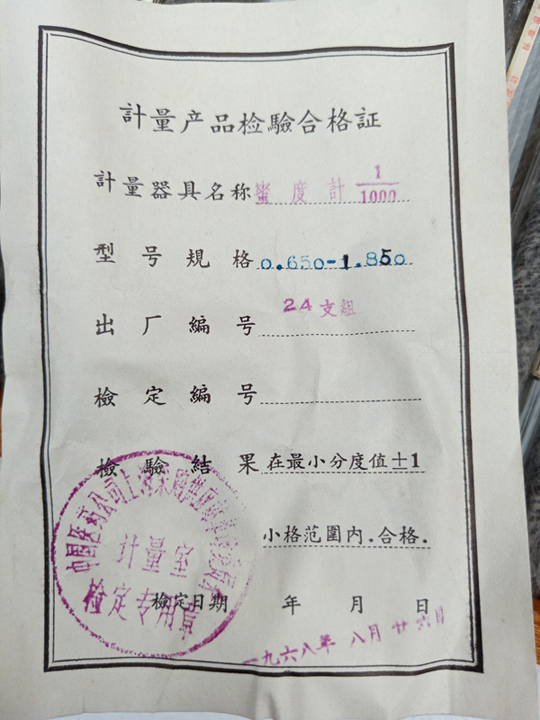 計量产品检驗合格証
計量器具名称 蜜度計 1/1000
型号規格 0.650-1.850
出厂編号 24支組
檢定編号
檢驗結果 在最小分度值±1
小格范圍內.合格.
檢定日期 年 月 日
一九六八年 八月 廿六日
中国医药公司上海采购供应站
計量室
检定专用章